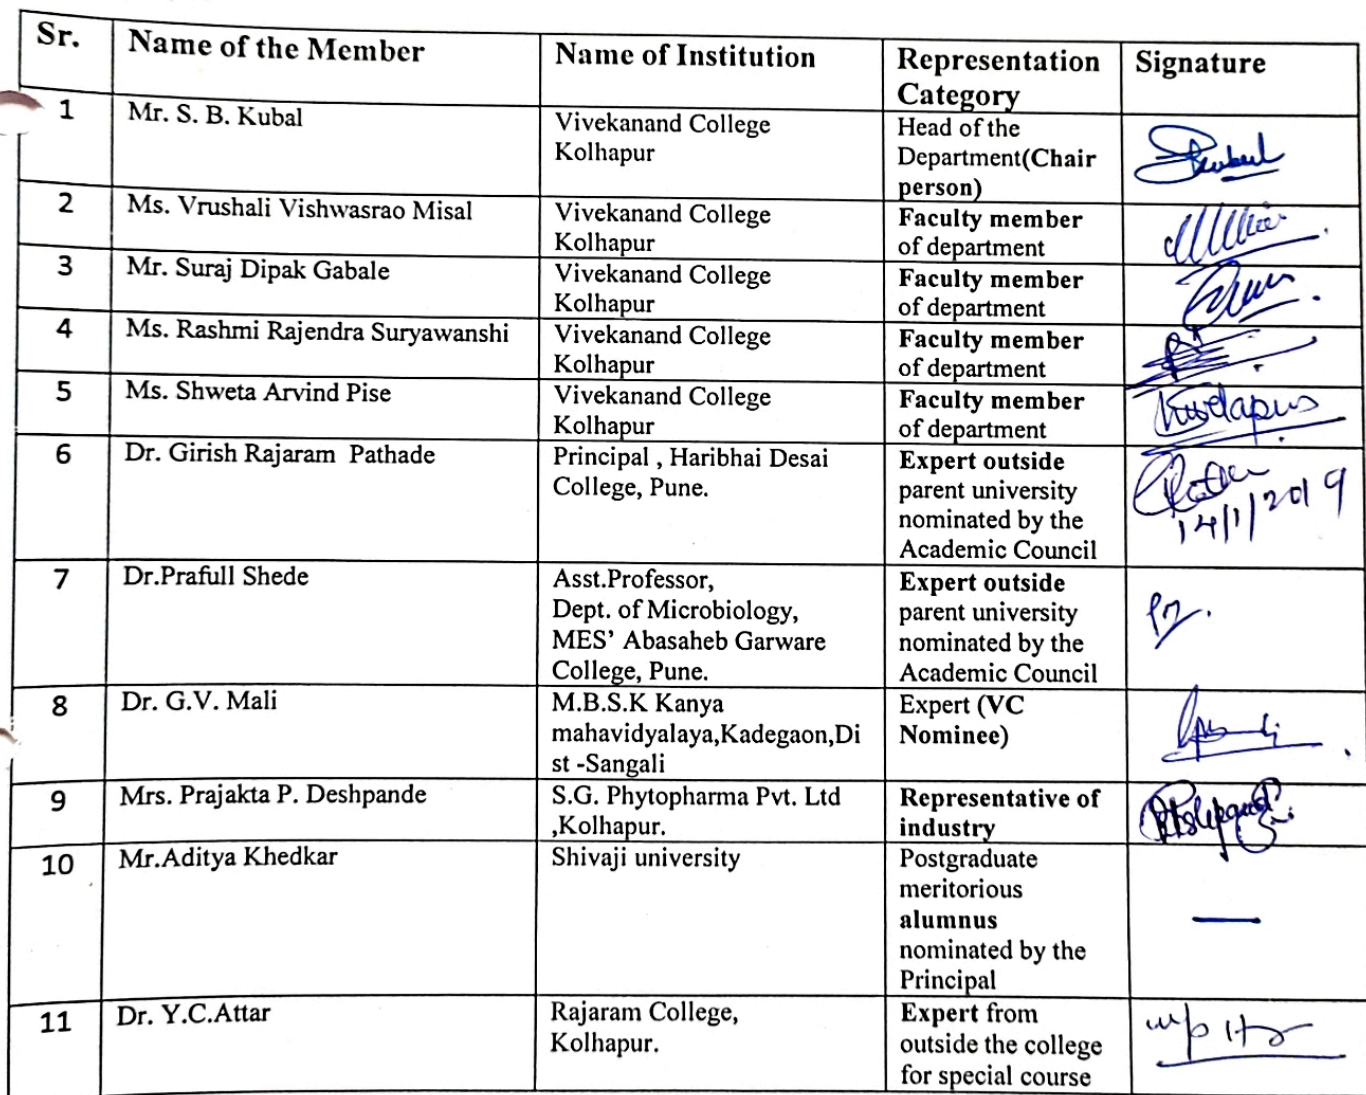 Sr. Name of the Member Name of Institution Representation Category Signature
1 Mr. S. B. Kubal Vivekanand College Kolhapur Head of the Department(Chair person)
2 Ms. Vrushali Vishwasrao Misal Vivekanand College Kolhapur Faculty member of department
3 Mr. Suraj Dipak Gabale Vivekanand College Kolhapur Faculty member of department
4 Ms. Rashmi Rajendra Suryawanshi Vivekanand College Kolhapur Faculty member of department
5 Ms. Shweta Arvind Pise Vivekanand College Kolhapur Faculty member of department
6 Dr. Girish Rajaram Pathade Principal , Haribhai Desai College, Pune. Expert outside parent university nominated by the Academic Council 14/1/2019
7 Dr.Prafull Shede Asst.Professor, Dept. of Microbiology, MES' Abasaheb Garware College, Pune. Expert outside parent university nominated by the Academic Council
8 Dr. G.V. Mali M.B.S.K Kanya mahavidyalaya,Kadegaon,Di st -Sangali Expert (VC Nominee)
9 Mrs. Prajakta P. Deshpande S.G. Phytopharma Pvt. Ltd ,Kolhapur. Representative of industry
10 Mr.Aditya Khedkar Shivaji university Postgraduate meritorious alumnus nominated by the Principal —
11 Dr. Y.C.Attar Rajaram College, Kolhapur. Expert from outside the college for special course